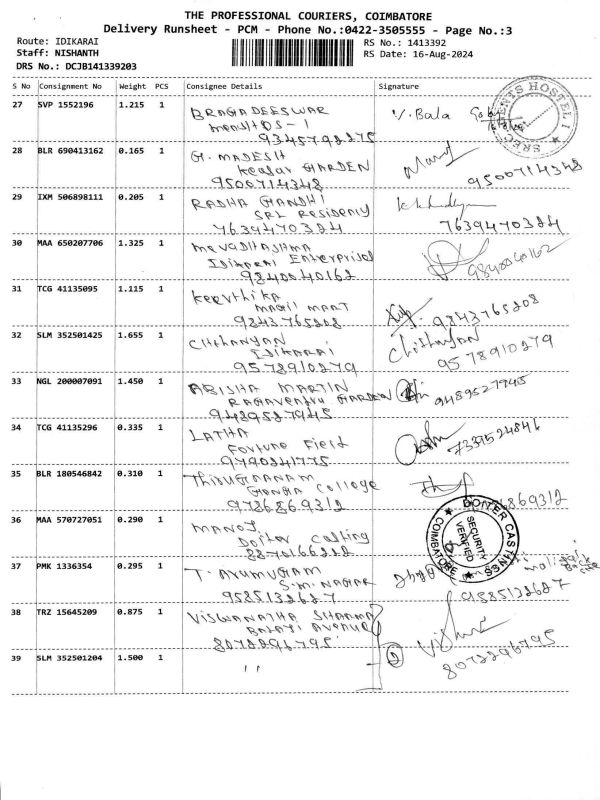 THE PROFESSIONAL COURIERS, COIMBATORE
Delivery Runsheet - PCM - Phone No.:0422-3505555 - Page No.:3
Route: IDIKARAI
RS No.: 1413392
Staff: NISHANTH
RS Date: 16-Aug-2024
DRS No.: DCJB141339203
S No Consignment No Weight PCS Consignee Details Signature
27 SVP 1552196 1.215 1 BRAGADEESWAR V. Bala
9345792275
SREC HOSTEL I
28 BLR 690413162 0.165 1 G. MADESH
GARDEN
9500714348 9500714348
29 IXM 506898111 0.205 1 RADHA GANDHI
SRL Residency
7639470324 7639470324
30 MAA 650207706 1.325 1
Idikarai Enterprises
9840040162 9840040162
31 TCG 41135095 1.115 1 Keerthika
MAGIL MART
9843765208 9843765208
32 SLM 352501425 1.655 1
IDIKARAI
9578910279 9578910279
33 NGL 200007091 1.450 1 ABISHA MARTIN
RAGAVENDRA GARDEN
9489527945 9489527945
34 TCG 41135296 0.335 1 LATHA
Fortune Field
9790241775 7339524846
35 BLR 180546842 0.310 1
Ganga College
9786869312 869312
36 MAA 570727051 0.290 1 MANOJ
SECURITY VERIFIED
COIMBATORE
37 PMK 1336354 0.295 1 T. Arumugam
S.M. NAGAR
9585132627 9585132627
38 TRZ 15645209 0.875 1 VISWANATHA SHARMA
BALAJI Avenue
8072296795 8072296795
39 SLM 352501204 1.500 1 " ②